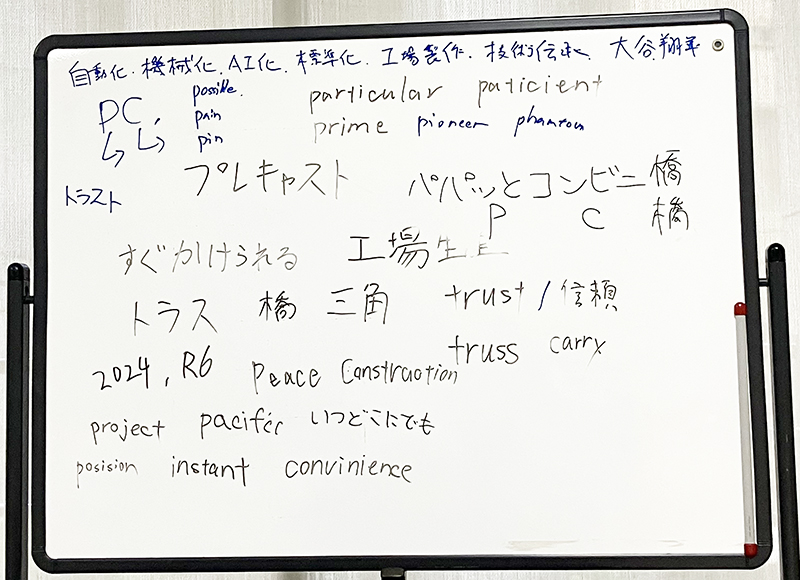 自動化．機械化．AI化．標準化．工場製作．技術伝承、大谷翔平
PC． possible particular paticient
pain prime pioneer phantom
pin
トラスト プレキャスト パパッとコンビニ橋
P C 橋
すぐかけられる 工場生
トラス 橋 三角 trust / 信頼
truss carry
2024, R6 Peace Construction
project pacific いつどこにでも
posision instant convinience